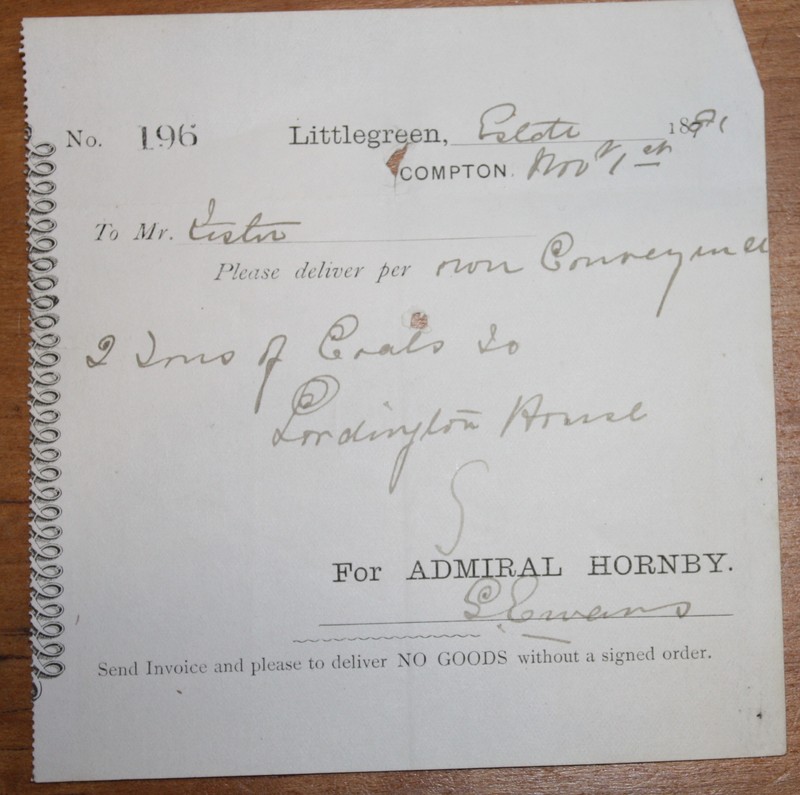 No. 196 Littlegreen, Estate 1881
COMPTON. Novr 1st
To Mr.
Please deliver per own Conveyance
2 Tons of Coals to
Lordington House
For ADMIRAL HORNBY.
Ewans
Send Invoice and please to deliver NO GOODS without a signed order.